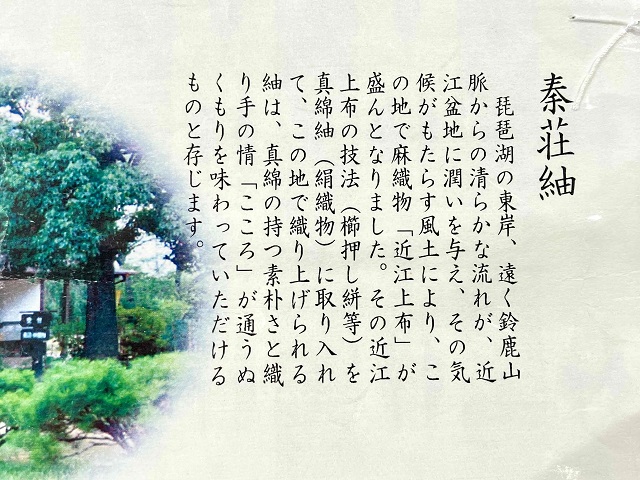 秦荘紬
琵琶湖の東岸、遠く鈴鹿山
脈からの清らかな流れが、近
江盆地に潤いを与え、その気
候がもたらす風土により、こ
の地で麻織物「近江上布」が
盛んとなりました。その近江
上布の技法(櫛押し絣等)を
真綿紬(絹織物)に取り入れ
て、この地で織り上げられる
紬は、真綿の持つ素朴さと織
り手の情「こころ」が通うぬ
くもりを味わっていただける
ものと存じます。